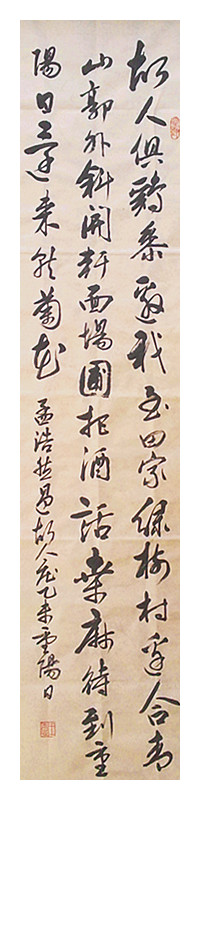 故人俱鷄黍邀我至田家緑樹村邊合青
山郭外斜開軒面場圃把酒話桑麻待到重
陽日還来就菊花 孟浩然過故人莊乙未重陽日